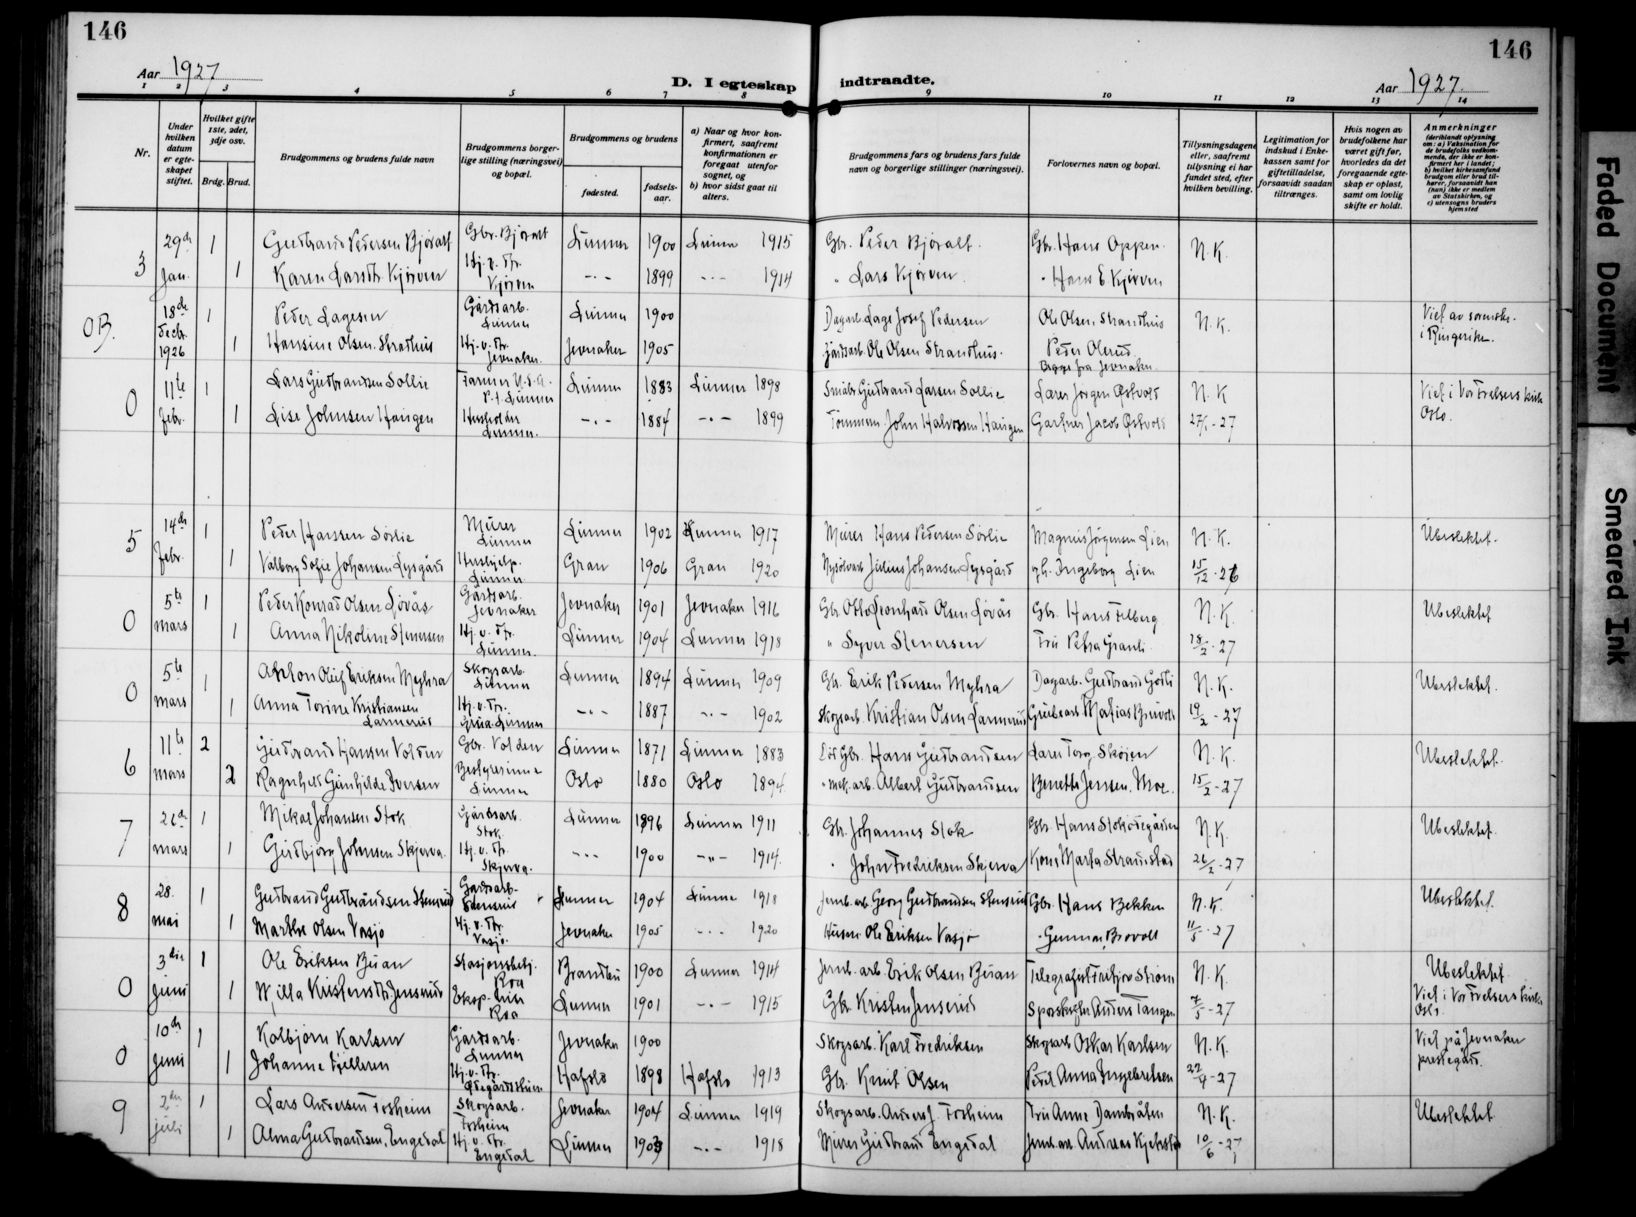 146
146
Aar 1927
D. I egteskap indtraadte.
Aar 1927.
1 2 3 4 5 6 7 8 9 10 11 12 13 14
Nr.
Under hvilken datum er egteskapet stiftet.
Hvilket gifte 1ste, 2det, 3dje osv.
Brdg. Brud.
Brudgommens og brudens fulde navn
Brudgommens borgerlige stilling (næringsvei) og bopæl.
Brudgommens og brudens
fødested.
fødselsaar.
a) Naar og hvor konfirmert, saafremt konfirmationen er foregaat utenfor sognet, og
b) hvor sidst gaat til alters.
Brudgommens fars og brudens fars fulde navn og borgerlige stillinger (næringsvei).
Forlovernes navn og bopæl.
Tillysningsdagene eller, saafremt tillysning ei har fundet sted, efter hvilken bevilling.
Legitimation for indskud i Enkekassen samt for giftetilladelse, forsaavidt saadan tiltrænges.
Hvis nogen av brudefolkene har været gift før, hvorledes da det foregaaende egteskap er opløst, samt om lovlig skifte er holdt.
Anmerkninger
3 29de 1 Gudbrand Pedersen Bjøralt Gbr. Bjøralt Lunner 1900 Lunner 1915 Gbr. Peder Bjøralt. Gbr. Hans Oppen. N.K.
Jan. 1 Karen Larsdtr. Kjørven Hj. v. Fr. Kjørven -"- 1899 -"- 1914 " Lars Kjørven. " Hans E. Kjørven
OB. 18de 1 Peder Lagesen Gårdsarb. Lunner Lunner 1900 Dagarb. Lage Josef Pedersen Ole Olsen. Strandhus N.K.
Decbr. 1926 1 Hansine Olsen. Strathus Hj. v. Fr. Jevnaker. Jevnaker 1905 Gårdsarb. Ole Olsen Strandhus. Peder Olerud. Begge fra Jevnaker
Viet av sorenskr. i Ringerike.
0 11te 1 Lars Gudbrandsen Sollie Farmer U.S.A. P.t. Lunner Lunner 1883 Lunner 1898 Småbr. Gudbrand Larsen Sollie Lærer Jørgen Østvold N.K
Febr. 1 Lise Johnsen Haugen Husholder Lunner. -"- 1884 -"- 1899 Tømmerm. John Halvorsen Haugen Gartner Jacob Østvold 27/1-27
Viet i Vor Frelsers kirke Oslo.
5 14de 1 Peder Hanssen Sørlie Murer Lunner Lunner 1902 Lunner 1917 Murer Hans Pedersen Sørlie Magnus Jørgensen Lien N.K. Ubeslektet.
Febr. 1 Valborg Sofie Johansen Lysgård Hushjelp. Lunner Gran 1906 Gran 1920 Julius Johansen Lysgård Ingeborg Lien 15/12-26
0 5te 1 Peder Konrad Olsen Løvås Gårdsarb. Jevnaker Jevnaker 1901 Jevnaker 1916 Gbr. Otto Leonhard Olsen Løvås Gbr. Hans Felberg N.K. Ubeslektet
mars 1 Anna Nikoline Stenersen Hj. v. Fr. Lunner. Lunner 1904 Lunner 1918 " Syver Stenersen Fru Petra Granli. 18/2-27
0 5te 1 Anton Oluf Eriksen Myhra Skogsarb. Lunner Lunner 1894 Lunner 1909 Gbr. Erik Pedersen Myhra Dagarb. Gudbrand Godli N.K. Ubeslektet.
mars 1 Anna Torine Kristiansen Larmerud Hj. v. Fr. Grua. Lunner -"- 1887 -"- 1902 Skogsarb. Kristian Olsen Larmerud Grubearb. Matias Bruvoll 19/2-27
6 11te 2 Gudbrand Hansen Volden Gbr. Volden Lunner 1871 Lunner 1883 Gbr. Hans Gudbrandsen Lars Torg. Skøien N.K. Ubeslektet.
mars 2 Ragnhild Gunhilde Iversen Bestyrerinne Lunner Oslo 1880 Oslo 1894 mek. arb. Albert Gudbrandsen Bernette Jensen. Moe. 15/2-27
7 26de 1 Mikal Johansen Stok Gårdsarb. Stok. Lunner 1896 Lunner 1911 Gbr. Johannes Stok Gbr. Hans Stoksødegården N.K. Ubeslektet.
mars 1 Gudbjørg Johnsen Skjerva Hj. v. Fr. Skjerva. -"- 1900 -"- 1914. " John Fredriksen Skjerva Kone Marta Strandstad 26/2-27
8 28. 1 Gudbrand Gudbrandsen Stensrud Gårdsarb. Stensrud Lunner 1904 Lunner 1918 Jernb. arb. Georg Gudbrandsen Stensrud Gbr. Hans Bekken N.K. Ubeslektet.
mai 1 Marthe Olsen Vasjø Hj. v. Fr. Vasjø. Jevnaker 1905 -"- 1920 Husm. Ole Eriksen Vasjø " Gunnar Brovoll 11/5-27
0 3die 1 Ole Eriksen Buan Stasjonsbetj. Roa Brandbu 1900 Lunner 1914 Jernb. arb. Erik Olsen Buan Telegrafist Fritjov Strøm N.K. Ubeslektet.
juni 1 Willa Kristensdtr. Jensrud Eksp. Roa Lunner 1901 -"- 1915 Gbr. Kristen Jensrud Sporskifter Anders Tangen 7/5-27 Viet i Vor Frelsers kirke Oslo.
0 10de 1 Kolbjørn Karlsen Gårdsarb. Lunner Jevnaker 1900 Skogsarb. Karl Fredriksen Skogsarb. Oskar Karlsen N.K. Viet på Jevnaker prestegård.
juni 1 Johanne Fjelleren Hj. v. Fr. Hafslo 1898 Hafslo 1913 Gbr. Knut Olsen Anna Ingebretsen 22/4-27
9 2den 1 Lars Andersen Fosheim Skogsarb. Fosheim Jevnaker 1904 Lunner 1919 Skogsarb. Anders J. Fosheim Fru Anne Dambråten N.K. Ubeslektet
juli 1 Alma Gudbrandsen. Engedal Hj. v. Fr. Engedal Lunner 1903 -"- 1918 Murer Gudbrand Engedal Jernb. arb. Andreas 10/6-27
Faded Document
Smeared Ink